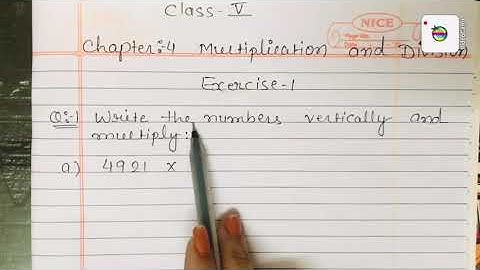 Class - V
NICE
Chapter:-4 Multiplication and Division
Exercise-1
Q:-1 Write the numbers vertically and
multiply:
a) 4921 x